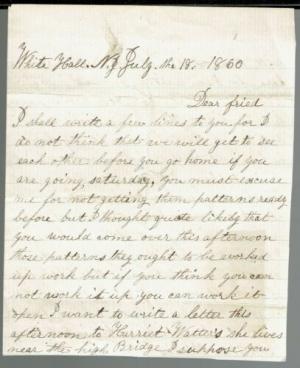 White Hall. NY July. the 18. 1860
Dear fried
I shall write a few lines to you for I
do not think that we will get to see
each other before you go home if you
are going, saturday, you must excuse
me for not getting them patterns ready
before but I thought quite likely that
you would come over this afternoon
those patterns they ought to be worked
up work but if you think you can
not work it up you can work it
open I want to write a letter this
afternoon to Harriet Watters she lives
near the high Bridge I suppose you